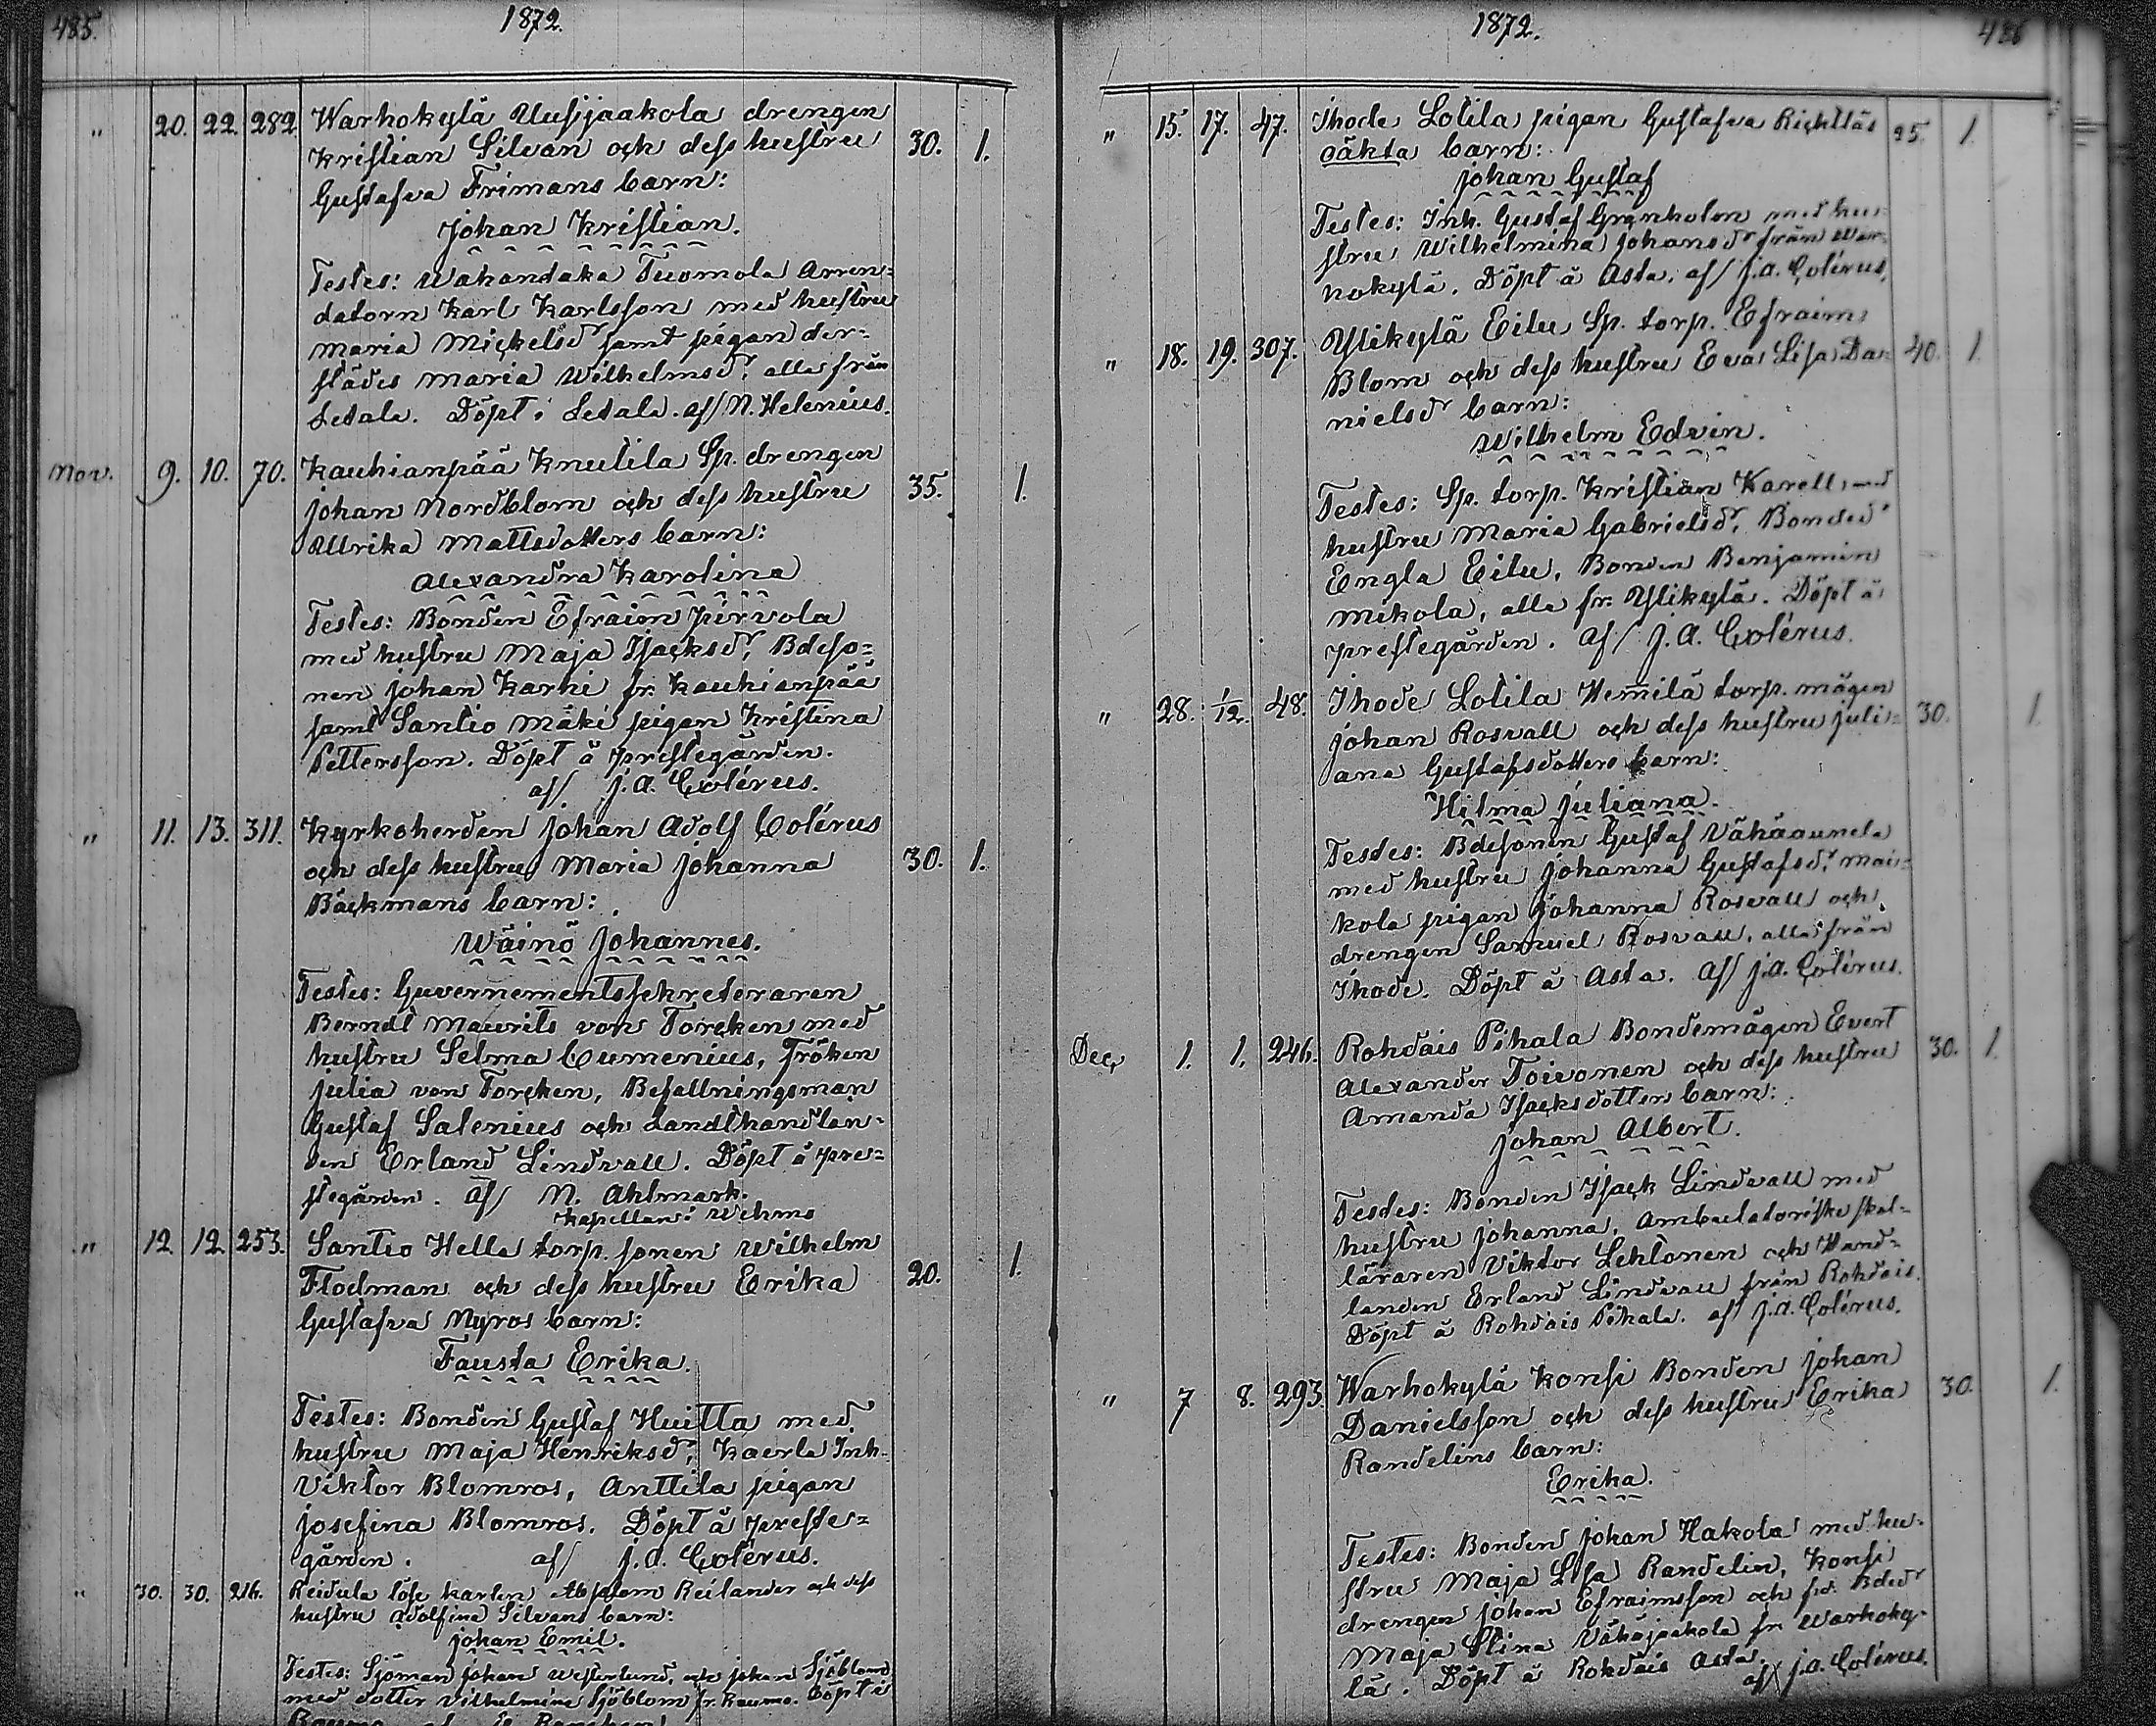 485. 1872.
" 20. 22. 282. Warhokylä Uusjaakola drengen
Kristian Silvan och dess hustru 30. 1.
Gustafva Frimans barn:
Johan Kristian.
Testes: Wahantaka Tuomola Arren=
datorn Karl Karlsson med hustru
Maria Mickelsdr samt pigan der=
städes Maria Wilhelmsdr, alla från
Letala. Döpt i Letala. af N. Helenius.
Nov. 9. 10. 70. Kauhianpää Knutila Sp. drengen
Johan Nordblom och dess hustru 35. 1.
Ulrika Mattsdotters barn:
Alexandra Karolina
Testes: Bonden Efraim Pirvola
med hustru Maja Isacksdr, Bdeso=
nen Johan Karhi fr. Kauhianpää
samt Santio Mäki pigan Kristina
Pettersson. Döpt å prestegården.
af J. A. Colérus.
" 11. 13. 311. Kyrkoherden Johan Adolf Colérus
och dess hustru Maria Johanna 30. 1.
Bäckmans barn:
Wäinö Johannes.
Testes: Guvernementssekreteraren
Berndt Maurits von Torcken med
hustru Selma Cumenius, Fröken
Julia von Torcken, Befallningsman
Gustaf Salenius och Landthandlan=
den Erland Lindvall. Döpt å pre=
stegården. af N. Ahlmark.
Kapellan i Wehmo
" 12. 12. 253. Santio Hella torp. sonen Wilhelm
Flodman och dess hustru Erika 20. 1.
Gustafva Nyros barn:
Fausta Erika.
Testes: Bonden Gustaf Huitta med
hustru Maja Henriksdr, Kaerla Inh.
Viktor Blomros, Anttila pigan
Josefina Blomros. Döpt å preste=
gården. af J. A. Colérus.
" 30. 30. 216. Reidula löse karlen Absalom Reilander och dess
hustru Adolfina Silvans barn:
Johan Emil.
Testes: Sjöman Johan Westerlund, och Johan Sjöblom
med dotter Vilhelmina Sjöblom fr. Raumo. Döpt i
Raumo af
1872. 486
" 15. 17. 47. Ihode Lotila pigan Gustafva Richtläs 25. 1.
oäkta barn:
Johan Gustaf
Testes: Inh. Gustaf Granholm med hu=
stru Wilhelmina Johansdr från War=
hokylä. Döpt å Asta. af J. A. Colérus.
" 18. 19. 307. Ylikylä Eilu Sp. torp. Efraim
Blom och dess hustru Eva Lisa Da= 40. 1.
nielsdr barn:
Wilhelm Edvin.
Testes: Sp. torp. Kristian Karell med
hustru Maria Gabrielsdr, Bondedr
Engla Eilu, Bonden Benjamin
Mikola, alla fr. Ylikylä. Döpt å
prestegården. af J. A. Colérus.
" 28. 1/12. 48. Ihode Lotila Hemilä torp. mågen
Johan Rosvall och dess hustru Juli= 30. 1.
ana Gustafsdotters barn:
Hilma Juliana.
Testes: Bdesonen Gustaf Vähäaunela
med hustru Johanna Gustafsdr, Mai=
kola pigan Johanna Rosvall och
drengen Samuel Rosvall, alla från
Ihode. Döpt å Asta. af J. A. Colérus.
Dec. 1. 1. 246. Rohdais Pihala Bondemågen Evert
Alexander Toivonen och dess hustru 30. 1.
Amanda Isacksdotters barn:
Johan Albert.
Testes: Bonden Isack Lindvall med
hustru Johanna, Ambulatoriske skol=
läraren Viktor Lehtonen och Hand=
landen Erland Lindvall från Rohdais.
Döpt å Rohdais Pihala. af J. A. Colérus.
" 7 8. 293. Warhokylä Konsi Bonden Johan
Danielsson och dess hustru Erika 30. 1.
Randelins barn:
Erika.
Testes: Bonden Johan Hakola med hu=
stru Maja Lisa Randelin, Konsi
drengen Johan Efraimsson och fr. Bdedr
Maja Stina Vähäjaakola fr. Warhoky=
lä. Döpt å Rohdais Asta.
af J. A. Colérus.